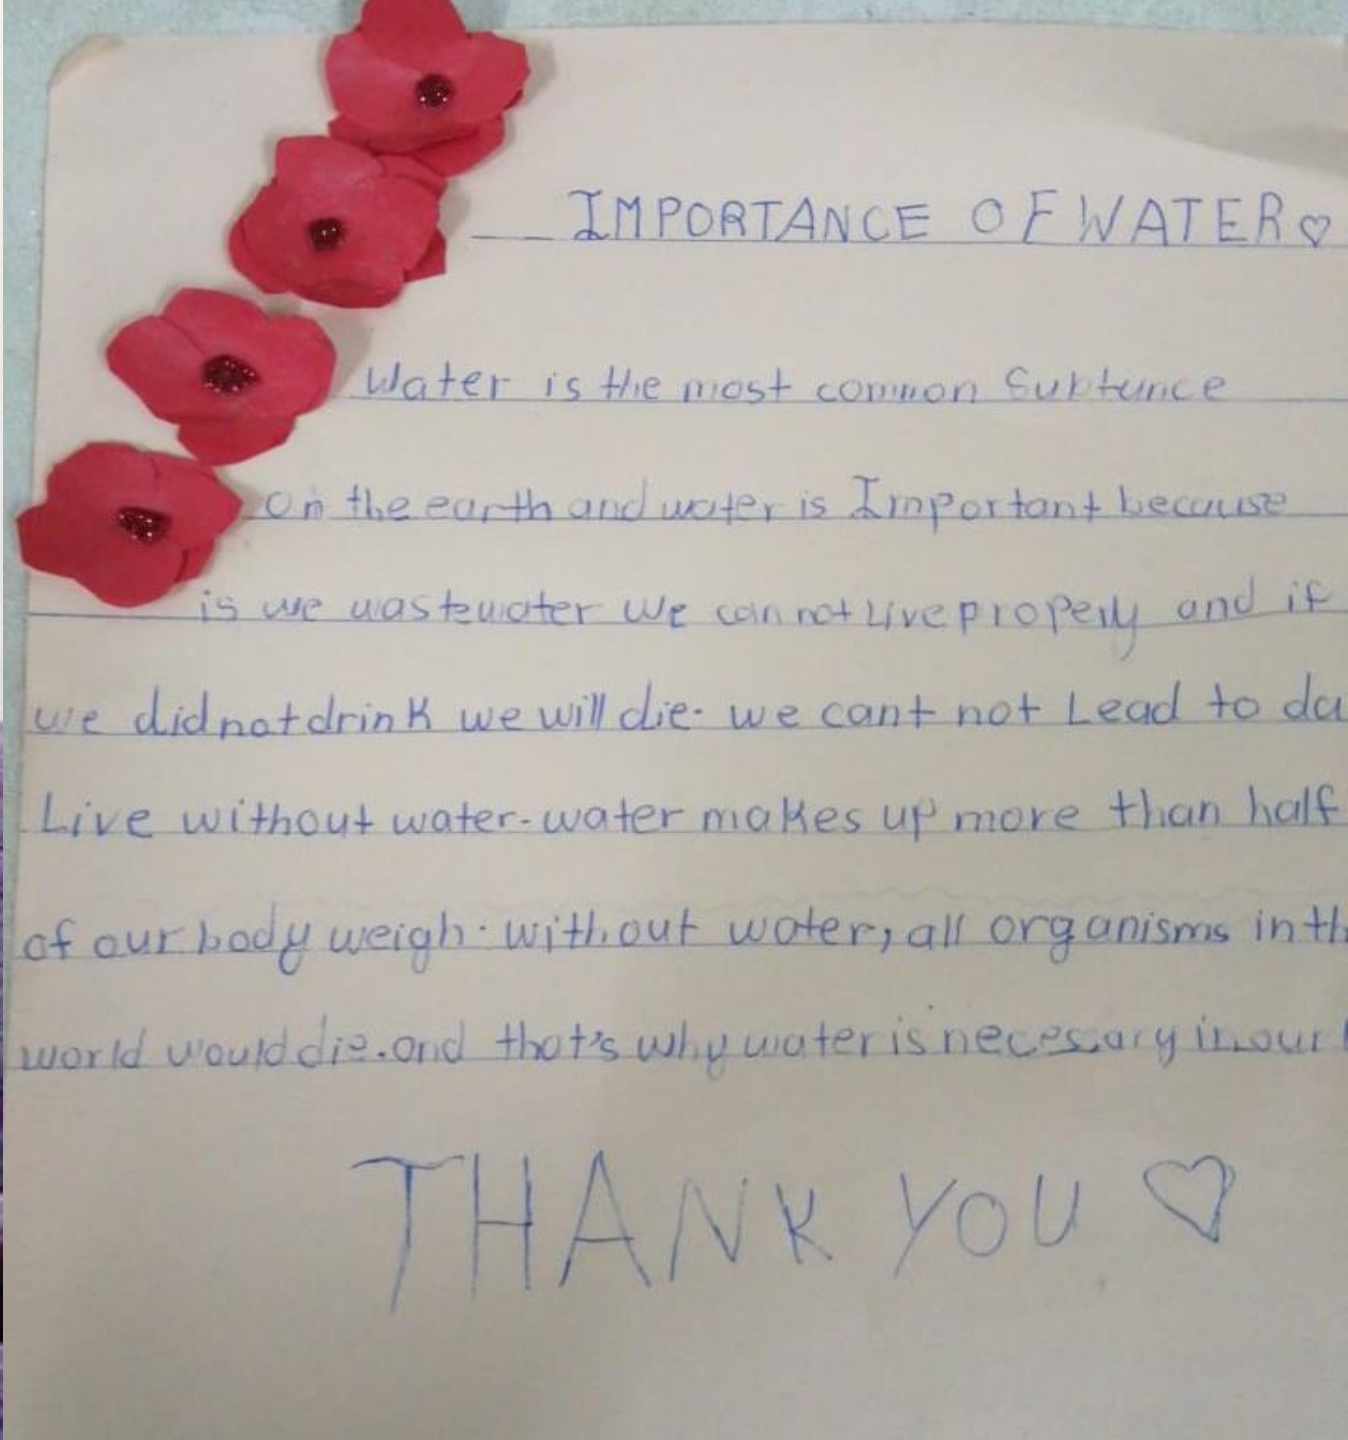 IMPORTANCE OF WATER ♡
Water is the most common Subtunce
on the earth and water is Important because
is we waste water We can not Live properly and if
we did not drink we will die. we cant not Lead to da
Live without water. water makes up more than half
of our body weigh. without water, all organisms in th
world would die. and that's why water is necessary in our
THANK YOU ♡